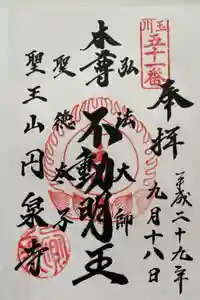 玉川
五十一番
奉拝
平成二十九年
九月十八日
弘法大師
本尊不動明王
聖徳太子
聖王山円泉寺